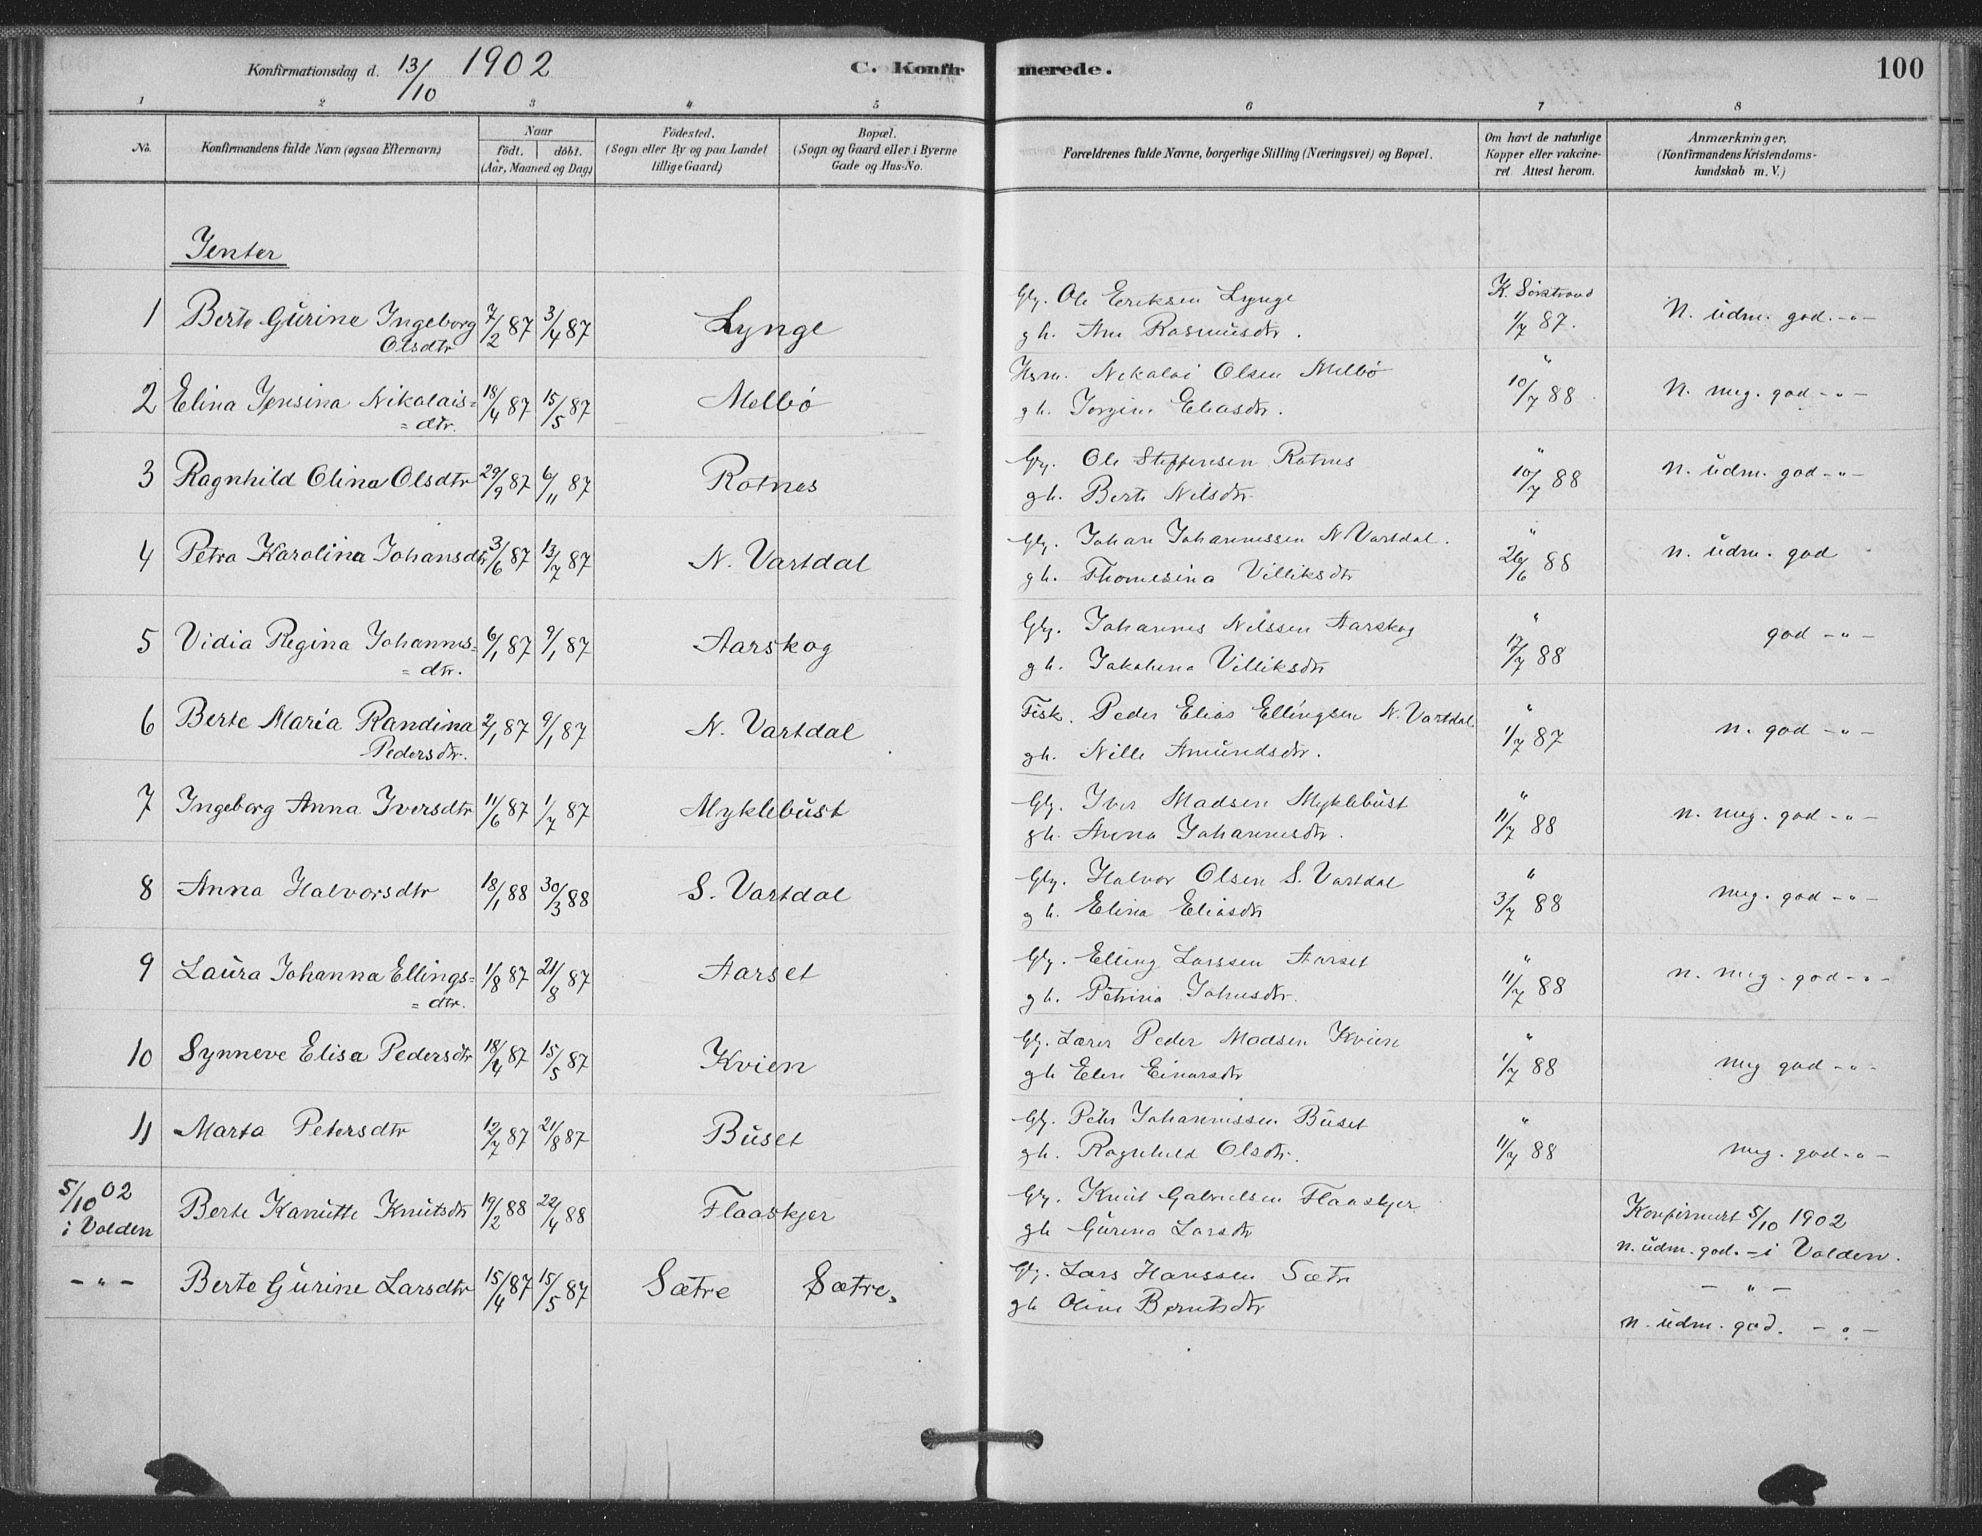 Konfirmationsdag d. 13/10 1902 C. Konfirmerede. 100
1 2 3 4 5 6 7 8
No. Konfirmandens fulde Navn (ogsaa Efternavn) Naar födt. döbt. (Aar, Maaned og Dag) Födested. (Sogn eller By og paa Landet tillige Gaard) Bopæl. (Sogn og Gaard eller i Byerne Gade og Hus-No. Forældrenes fulde Navne, borgerlige Stilling (Næringsvei) og Bopæl. Om havt de naturlige Kopper eller vakcineret. Attest herom. Anmærkninger, (Konfirmandens Kristendomskundskab m. V.)
Jenter
1 Berte Gurine Ingeborg 7/2 87 3/4 87 Lynge Gbr. Ole Eriksen Lynge K. Sørstrand N. udm. god. -"-
Olsdtr gh. Ane Rasmusdtr. 1/7 87.
2 Elina Jensina Nikolais= 18/4 87 15/5 87 Melbö Hsm. Nikolai Olsen Melbö " 10/7 88 N. meg. god -"-
=dtr. gh. Jorgine Eliasdtr.
3 Ragnhild Olina Olsdtr 29/9 87 6/11 87 Rotnes Gbr. Ole Steffensen Rotnes " 10/7 88 n. udm. god -"-
gh. Berte Nilsdtr.
4 Petra Karolina Johansdtr 3/6 87 13/7 87 N. Vartdal Gbr. Johan Johannessen N Vartdal. " 26/6 88 n. udm. god
gh. Thomesina Villiksdtr
5 Vidia Regina Johannes= 6/1 87 9/1 87 Aarskog Gbr. Johannes Nilssen Aarskog " 17/7 88 god -"-
=dtr. gh. Jakobina Villiksdtr
6 Berte Maria Randina 2/1 87 9/1 87 N. Vartdal Fisk. Peder Elias Ellingsen N. Vartdal " 1/7 87 n. god -"-
Pedersdtr. gh. Nille Amundsdtr.
7 Ingeborg Anna Iversdtr 11/6 87 1/7 87 Myklebust Gbr. Iver Madsen Myklebust " 11/7 88 n. meg. god -"-
gh. Anna Johannesdtr.
8 Anna Halvorsdtr 18/1 88 30/3 88 S. Vartdal Gbr. Halvor Olsen S. Vartdal " 3/7 88 meg. god -"-
gh. Elina Eliasdtr
9 Laura Johanna Ellings= 1/8 87 21/8 87 Aarset Gbr. Elling Larssen Aarset " 11/7 88 n. meg. god -"-
=dtr. gh. Petrina Johnsdtr.
10 Synneve Elisa Pedersdtr 18/4 87 15/5 87 Kvien Gbr. Lærer Peder Madsen Kvien " 1/7 88 meg god -"-
gh Elen Einarsdtr
11 Marta Petersdtr 12/7 87 21/8 87 Buset Gbr. Peter Johannessen Buset " 11/7 88 meg. god -"-
gh. Ragnhild Olsdtr.
5/10 02 Berte Kanutte Knutsdtr 19/2 88 22/4 88 Flaaskjer Gbr. Knut Gabrielsen Flaaskjer Konfirmert 5/10 1902
i Volden gh Gurina Larsdtr n. udm. god. - i Volden.
-"- Berte Gurine Larsdtr 15/4 87 15/5 87 Sætre Sætre. Gbr. Lars Hanssen Sætre - " -
gh Oline Berntsdtr n. udm. god. -"-